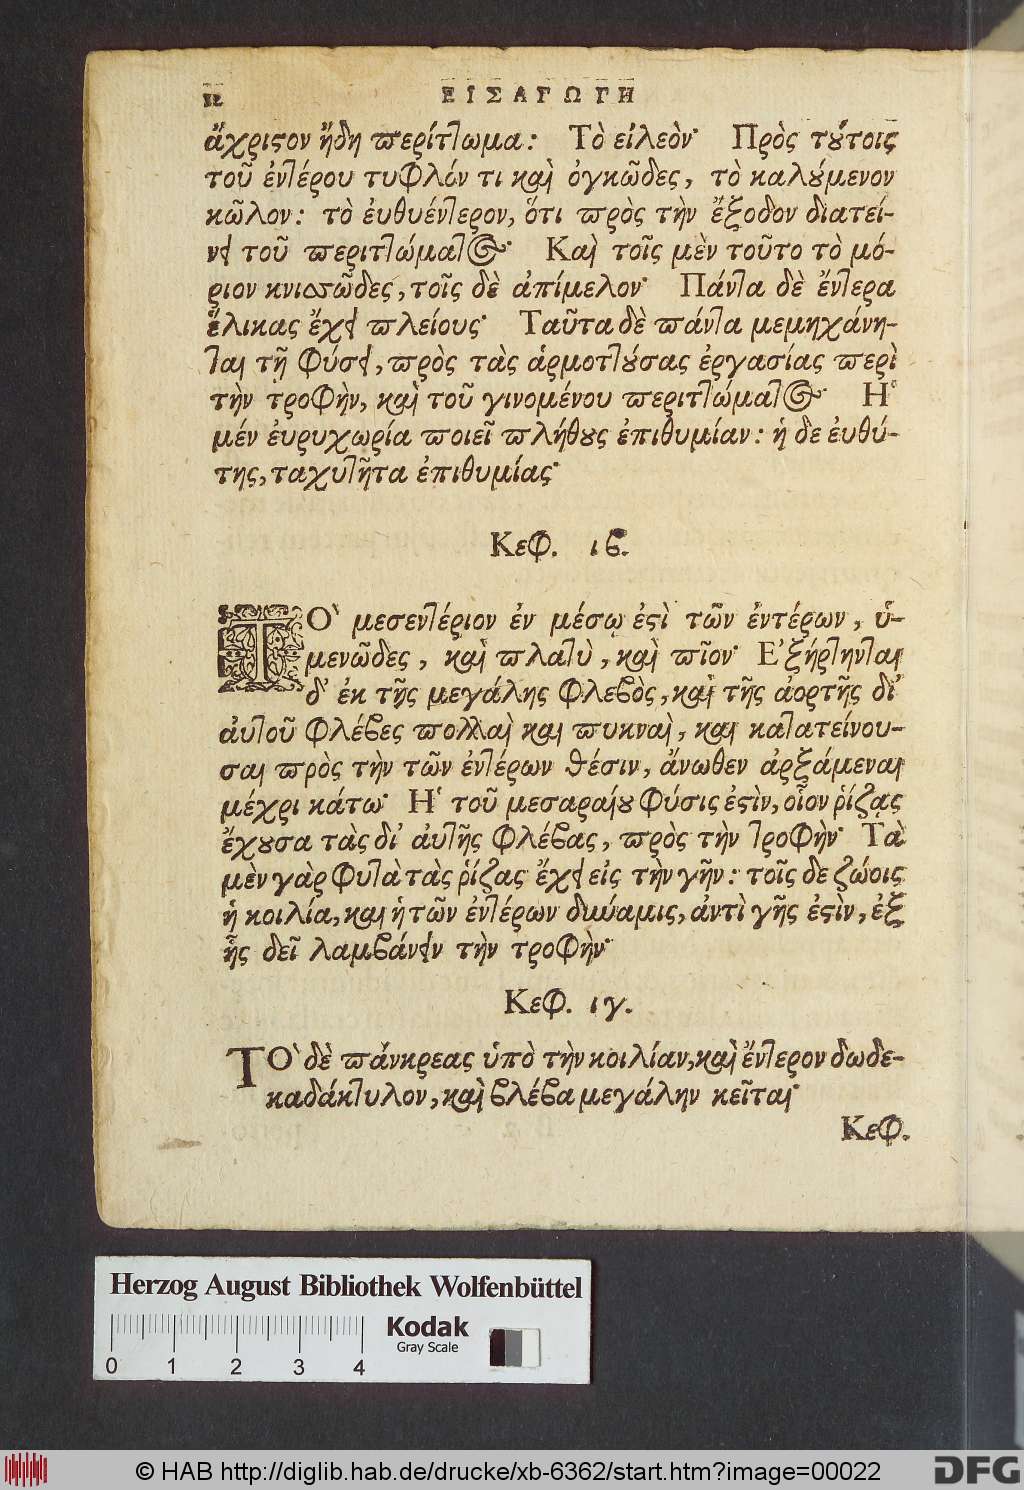 12 ΕΙΣΑΓΩΓΗ
ἄχριςον ἤδη περίτ]ωμα: Τὸ εἰλεὸν· Πρὸς τούτοις
τοῦ ἐντέρου τυφλόν τι καὶ ὀγκῶδες, τὸ καλούμενον
κῶλον: τὸ ἐυθυέντερον, ὅτι πρὸς τὴν ἔξοδον διατεί-
νει τοῦ περιττώματος· Καὶ τοῖς μὲν τοῦτο τὸ μό-
ριον κνισσῶδες, τοῖς δὲ ἀπίμελον· Πάντα δὲ ἔντερα
ἕλικας ἔχει πλείους· Ταῦτα δὲ πάντα μεμηχάνη-
ται τῇ φύσει, πρὸς τὰς ἁρμοττούσας ἐργασίας περὶ
τὴν τροφὴν, καὶ τοῦ γινομένου περιττώματος· Ἡ
μέν ἐυρυχωρία ποιεῖ πλήθους ἐπιθυμίαν: ἡ δε ἐυθύ-
της, ταχυτῆτα ἐπιθυμίας·
Κεφ. ιβ.
ΤῸ μεσεντέριον ἐν μέσῳ ἐςὶ τῶν ἐντέρων, ὑ-
μενῶδες, καὶ πλατὺ, καὶ πῖον· Ἐξήρτηνται
δ' ἐκ τῆς μεγάλης φλεβὸς, καὶ τῆς ἀορτῆς δι'
ἀυτοῦ φλέβες πολλαὶ και πυκναὶ, και κατατείνου-
σαι πρὸς τὴν τῶν ἐντέρων θέσιν, ἄνωθεν ἀρξάμεναι
μέχρι κάτω· Ἡ τοῦ μεσαραίου φύσις ἐςὶν, οἷον ῥίζας
ἔχουσα τὰς δι' ἀυτῆς φλέβας, πρὸς τὴν τροφὴν· Τὰ
μὲν γὰρ φυτὰ τὰς ῥίζας ἔχει εἰς τὴν γῆν: τοῖς δε ζώοις
ἡ κοιλία, και ἡ τῶν ἐντέρων δύναμις, ἀντὶ γῆς ἐςὶν, ἐξ
ἧς δεῖ λαμβάνειν τὴν τροφὴν·
Κεφ. ιγ.
ΤῸ δὲ πάνκρεας ὑπὸ τὴν κοιλίαν, καὶ ἔντερον δωδε-
καδάκτυλον, καὶ βλέβα μεγάλην κεῖται·
Κεφ.
Herzog August Bibliothek Wolfenbüttel
Kodak
Gray Scale
0 1 2 3 4
© HAB http://diglib.hab.de/drucke/xb-6362/start.htm?image=00022
DFG